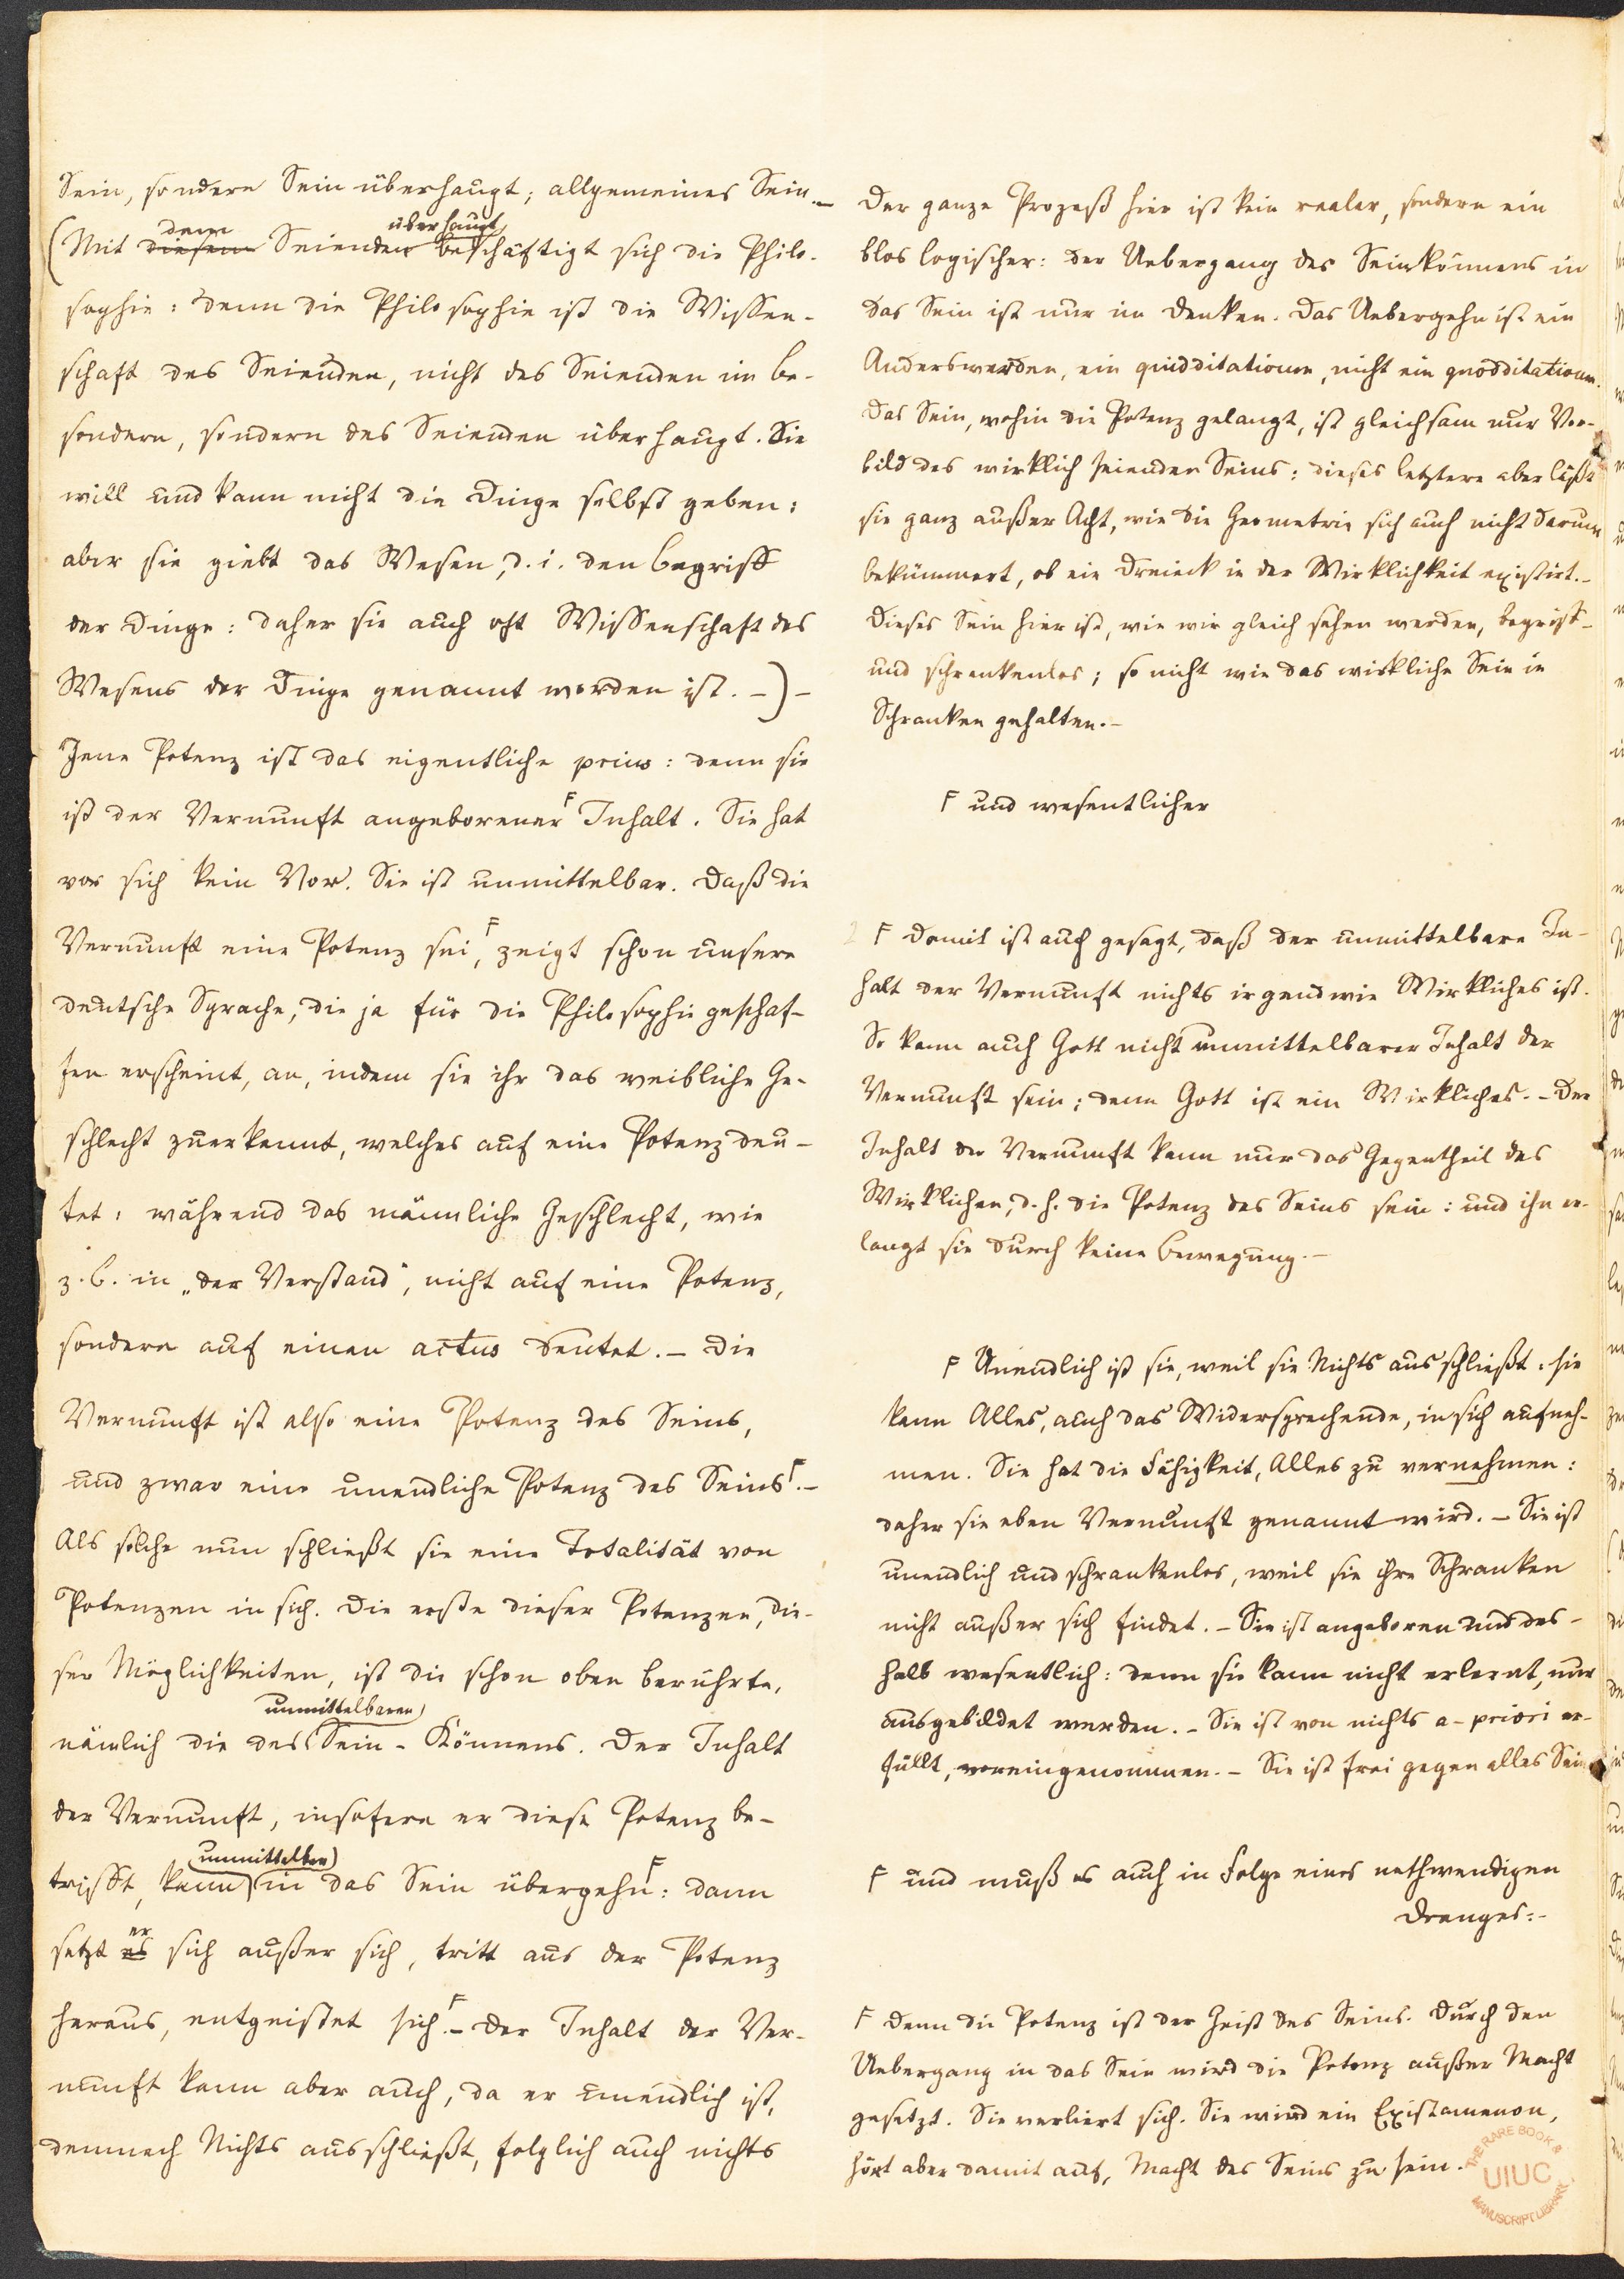 Sein, sondern Sein überhaupt; allgemeines Sein. –
dem überhaupt
(Mit diesem Seienden beschäftigt sich die Philo-
sophie: denn die Philosophie ist die Wissen-
schaft des Seienden, nicht des Seienden im be-
sondern, sondern des Seienden überhaupt. Sie
will und kann nicht die Dinge selbst geben:
aber sie giebt das Wesen, d. i. den Begriff
der Dinge: daher sie auch oft Wissenschaft des
Wesens der Dinge genannt worden ist. –) –
Jene Potenz ist das eigentliche prius: denn sie
ist der Vernunft angeborener F Inhalt. Sie hat
vor sich kein Vor. Sie ist unmittelbar. Daß die
Vernunft eine Potenz sei, F zeigt schon unsere
deutsche Sprache, die ja für die Philosophie geschaf-
fen erscheint, an, indem sie ihr das weibliche Ge-
schlecht zuerkennt, welches auf eine Potenz deu-
tet: während das männliche Geschlecht, wie
z. B. in „der Verstand“, nicht auf eine Potenz,
sondern auf einen actus deutet. – Die
Vernunft ist also eine Potenz des Seins,
und zwar eine unendliche Potenz des Seins F. –
Als solche nun schließt sie eine Totalität von
Potenzen in sich. Die erste dieser Potenzen, die-
ser Möglichkeiten, ist die schon oben berührte,
unmittelbaren
nämlich die des Sein-Könnens. Der Inhalt
der Vernunft, insofern er diese Potenz be-
unmittelbar
trifft, kann in das Sein übergehn F: dann
er
setzt es sich außer sich, tritt aus der Potenz
heraus, entgeistet sich F. – Der Inhalt der Ver-
nunft kann aber auch, da er unendlich ist,
demnach Nichts ausschließt, folglich auch nichts
Der ganze Prozeß hier ist kein realer, sondern ein
blos logischer: der Uebergang des Seinkönnens in
das Sein ist nur im Denken. Das Uebergehn ist ein
Anderswerden, ein quidditatioum, nicht ein quodditatioum.
Das Sein, wohin die Potenz gelangt, ist gleichsam nur Vor-
bild des wirklich seienden Seins: dieses letztere aber läßt
sie ganz außer Acht, wie die Geometrie sich auch nicht darum
bekümmert, ob ein Dreieck in der Wirklichkeit existirt. –
Dieses Sein hier ist, wie wir gleich sehen werden, begriff-
und schrankenlos; so nicht wie das wirkliche Sein in
Schranken gehalten. –
F und wesentlicher
F Damit ist auch gesagt, daß der unmittelbare In-
halt der Vernunft nichts irgendwie Wirkliches ist.
So kann auch Gott nicht unmittelbarer Inhalt der
Vernunft sein; denn Gott ist ein Wirkliches. – Der
Inhalt der Vernunft kann nur das Gegentheil des
Wirklichen, d. h. die Potenz des Seins sein: und ihn er-
langt sie durch keine Bewegung. –
F Unendlich ist sie, weil sie Nichts ausschließt: sie
kann Alles, auch das Widersprechende, in sich aufneh-
men. Sie hat die Fähigkeit, Alles zu vernehmen:
daher sie eben Vernunft genannt wird. – Sie ist
unendlich und schrankenlos, weil sie ihre Schranken
nicht außer sich findet. – Sie ist angeboren und des-
halb wesentlich: denn sie kann nicht erlernt, nur
ausgebildet werden. – Sie ist von nichts a-priori er-
füllt, voreingenommen. – Sie ist frei gegen alles Sein
F und muß es auch in Folge eines nothwendigen
Dranges: –
F denn die Potenz ist der Geist des Seins. Durch den
Uebergang in das Sein wird die Potenz außer Macht
gesetzt. Sie verliert sich. Sie wird ein Existamenon,
hört aber damit auf, Macht des Seins zu sein.
THE RARE BOOK &
UIUC
MANUSCRIPT LIBRARY